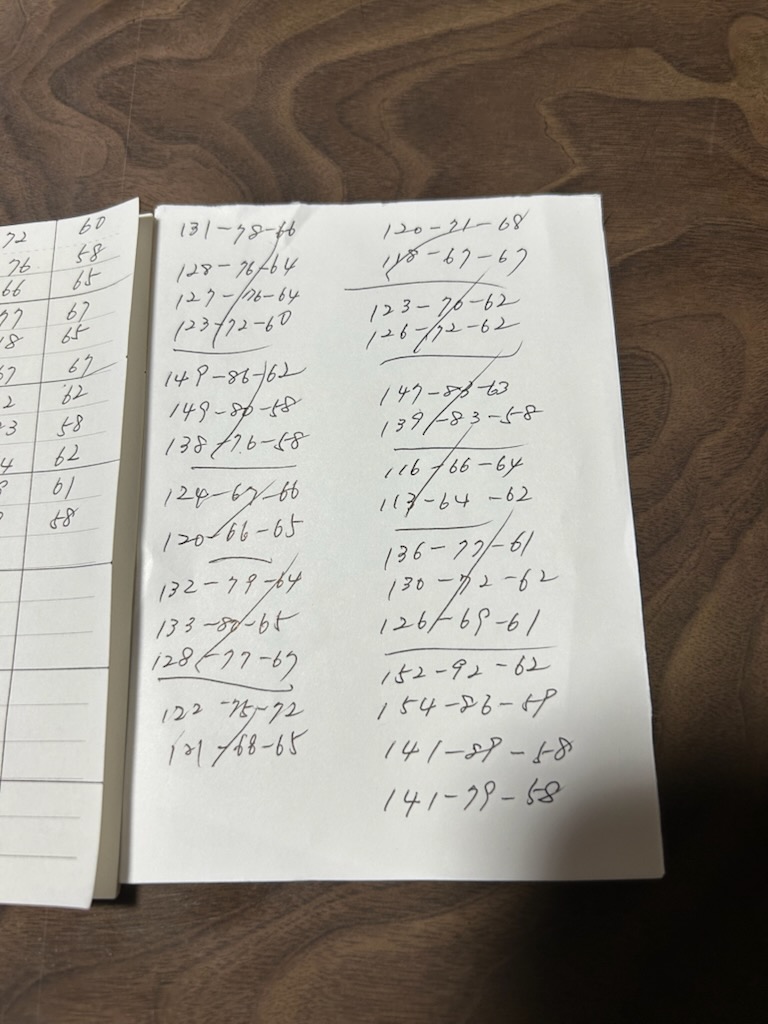 72 60
76 58
66 65
77 67
18 65
67 67
2 62
3 58
4 62
61
58
131-78-66
128-76-64
127-76-64
123-72-60
149-86-62
149-80-58
138-76-58
124-67-66
120-66-65
132-79-64
133-80-65
128-77-67
122-75-72
121-68-65
120-71-68
118-67-67
123-70-62
126-72-62
147-83-63
139-83-58
116-66-64
113-64-62
136-77-61
130-72-62
126-69-61
152-92-62
154-86-59
141-89-58
141-79-58